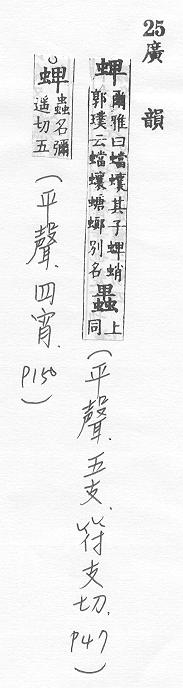 25
廣韻
蜱爾雅曰蟷蠰其子蜱蛸
郭璞云蟷蠰螗蜋別名𧕿上同
(平聲、五支、符支切、P47)
蜱蟲名彌
遥切五
(平聲、四宵、P150)